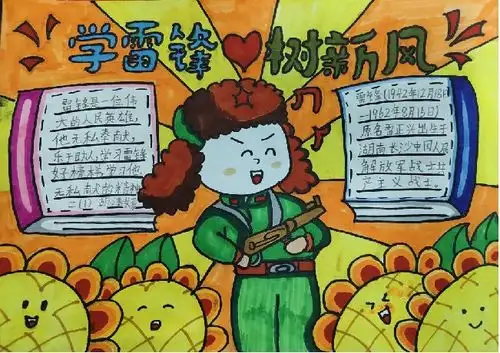 学雷锋树新风
雷锋是一位伟
大的人民英雄,
他无私奉献,
乐于助人,学习雷锋
好榜样学习他
无私奉献的精神
雷锋(1942年12月18日
—1962年8月15日)
原名雷正兴出生于
湖南长沙中国人民
解放军战士共
产主义战士。